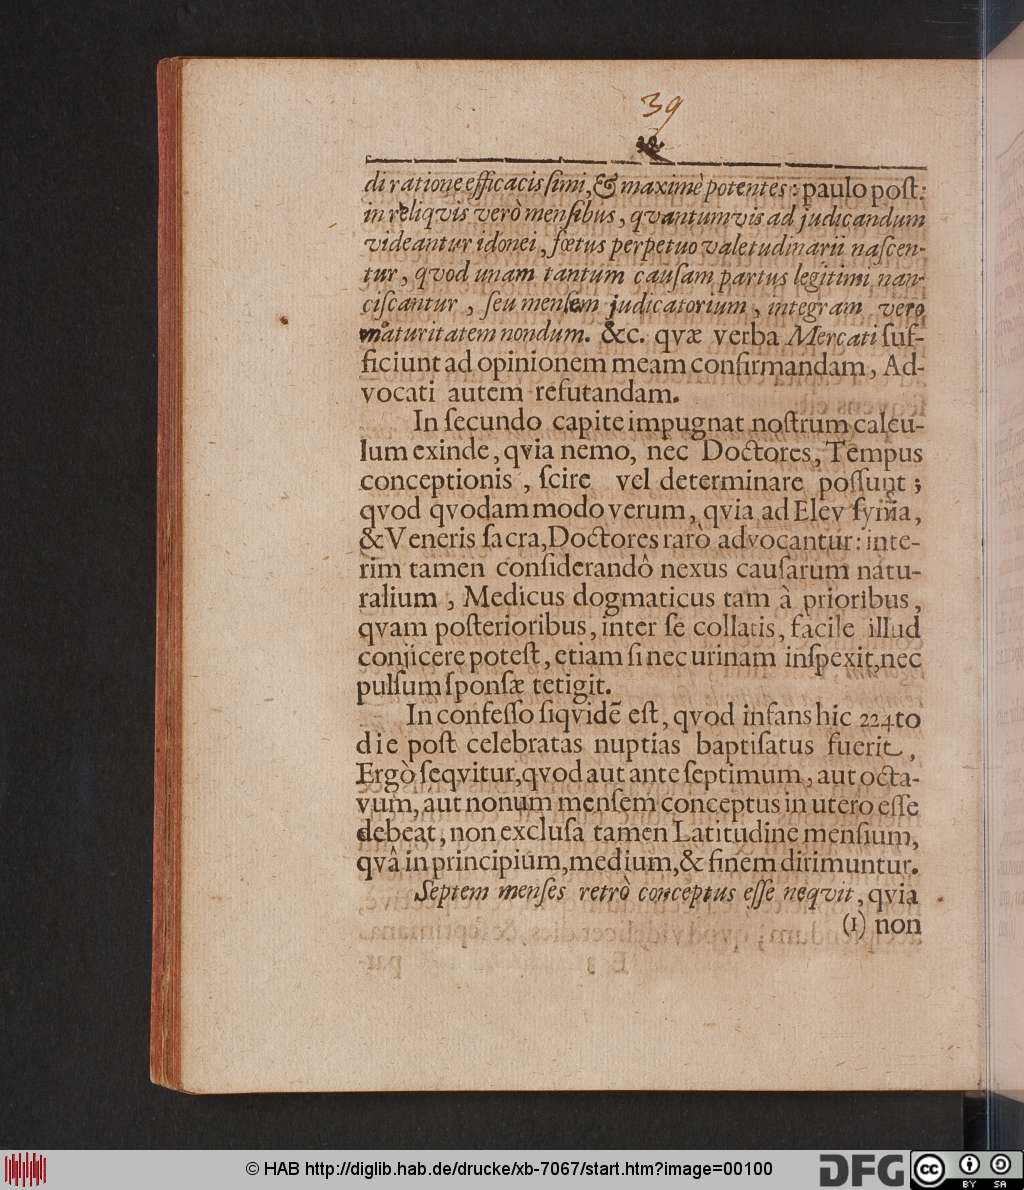 39
di ratione efficacissimi, & maximè potentes: paulo post:
in reliqvis verò mensibus, qvantumvis ad judicandum
videantur idonei, fœtus perpetuo valetudinarii nascen-
tur, qvod unam tantum causam partus legitimi nan-
ciscantur, seu mensem judicatorium, integram vero
maturitatem nondum. &c. qvæ verba Mercati suf-
ficiunt ad opinionem meam confirmandam, Ad-
vocati autem refutandam.
In secundo capite impugnat nostrum calcu-
lum exinde, qvia nemo, nec Doctores, Tempus
conceptionis, scire vel determinare possunt;
qvod qvodammodo verum, qvia ad Elev synia,
& Veneris sacra, Doctores rarò advocantur: inte-
rim tamen considerandô nexus causarum natu-
ralium, Medicus dogmaticus tam à prioribus,
qvam posterioribus, inter se collatis, facile illud
conjicere potest, etiam si nec urinam inspexit, nec
pulsum sponsæ tetigit.
In confesso siqvidē est, qvod infans hic 224to
die post celebratas nuptias baptisatus fuerit,
Ergò seqvitur, qvod aut ante septimum, aut octa-
vum, aut nonum mensem conceptus in utero esse
debeat, non exclusa tamen Latitudine mensium,
qvâ in principium, medium, & finem dirimuntur.
Septem menses retrò conceptus esse neqvit, qvia
(1) non
© HAB http://diglib.hab.de/drucke/xb-7067/start.htm?image=00100
DFG
cc
BY SA